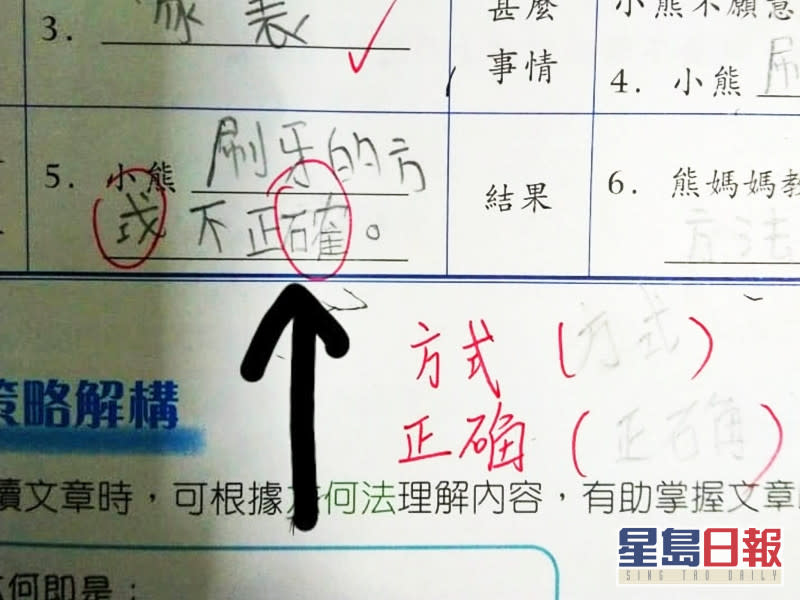 3.
甚麼
事情
小熊不願意
4. 小熊 刷
5. 小熊 刷牙的方
式不正確。
結果
6. 熊媽媽教
方法
方式 (方式)
正确 (正确)
策略解構
讀文章時，可根據六何法理解內容，有助掌握文章
六何即是：
星島日報
SING TAO DAILY